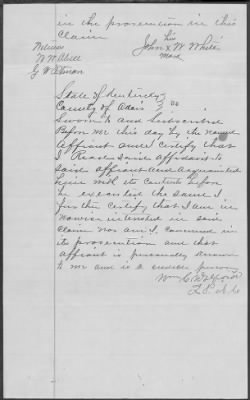 in the prosecution in this
claim
his
John x W White
mark
Witness
W W Abell
State of Kentucky
County of Adair } SS
Sworn to and Subscribed
Before me this day by the named
Affiant and Certify that
I Read Said affidavit to
Said affiant and acquainted
him with its contents before
he executed the same I
further Certify that I am in
nowise interested in said
claim nor am I concerned in
its prosecution and that
affiant is personally known
to me and is a credible person